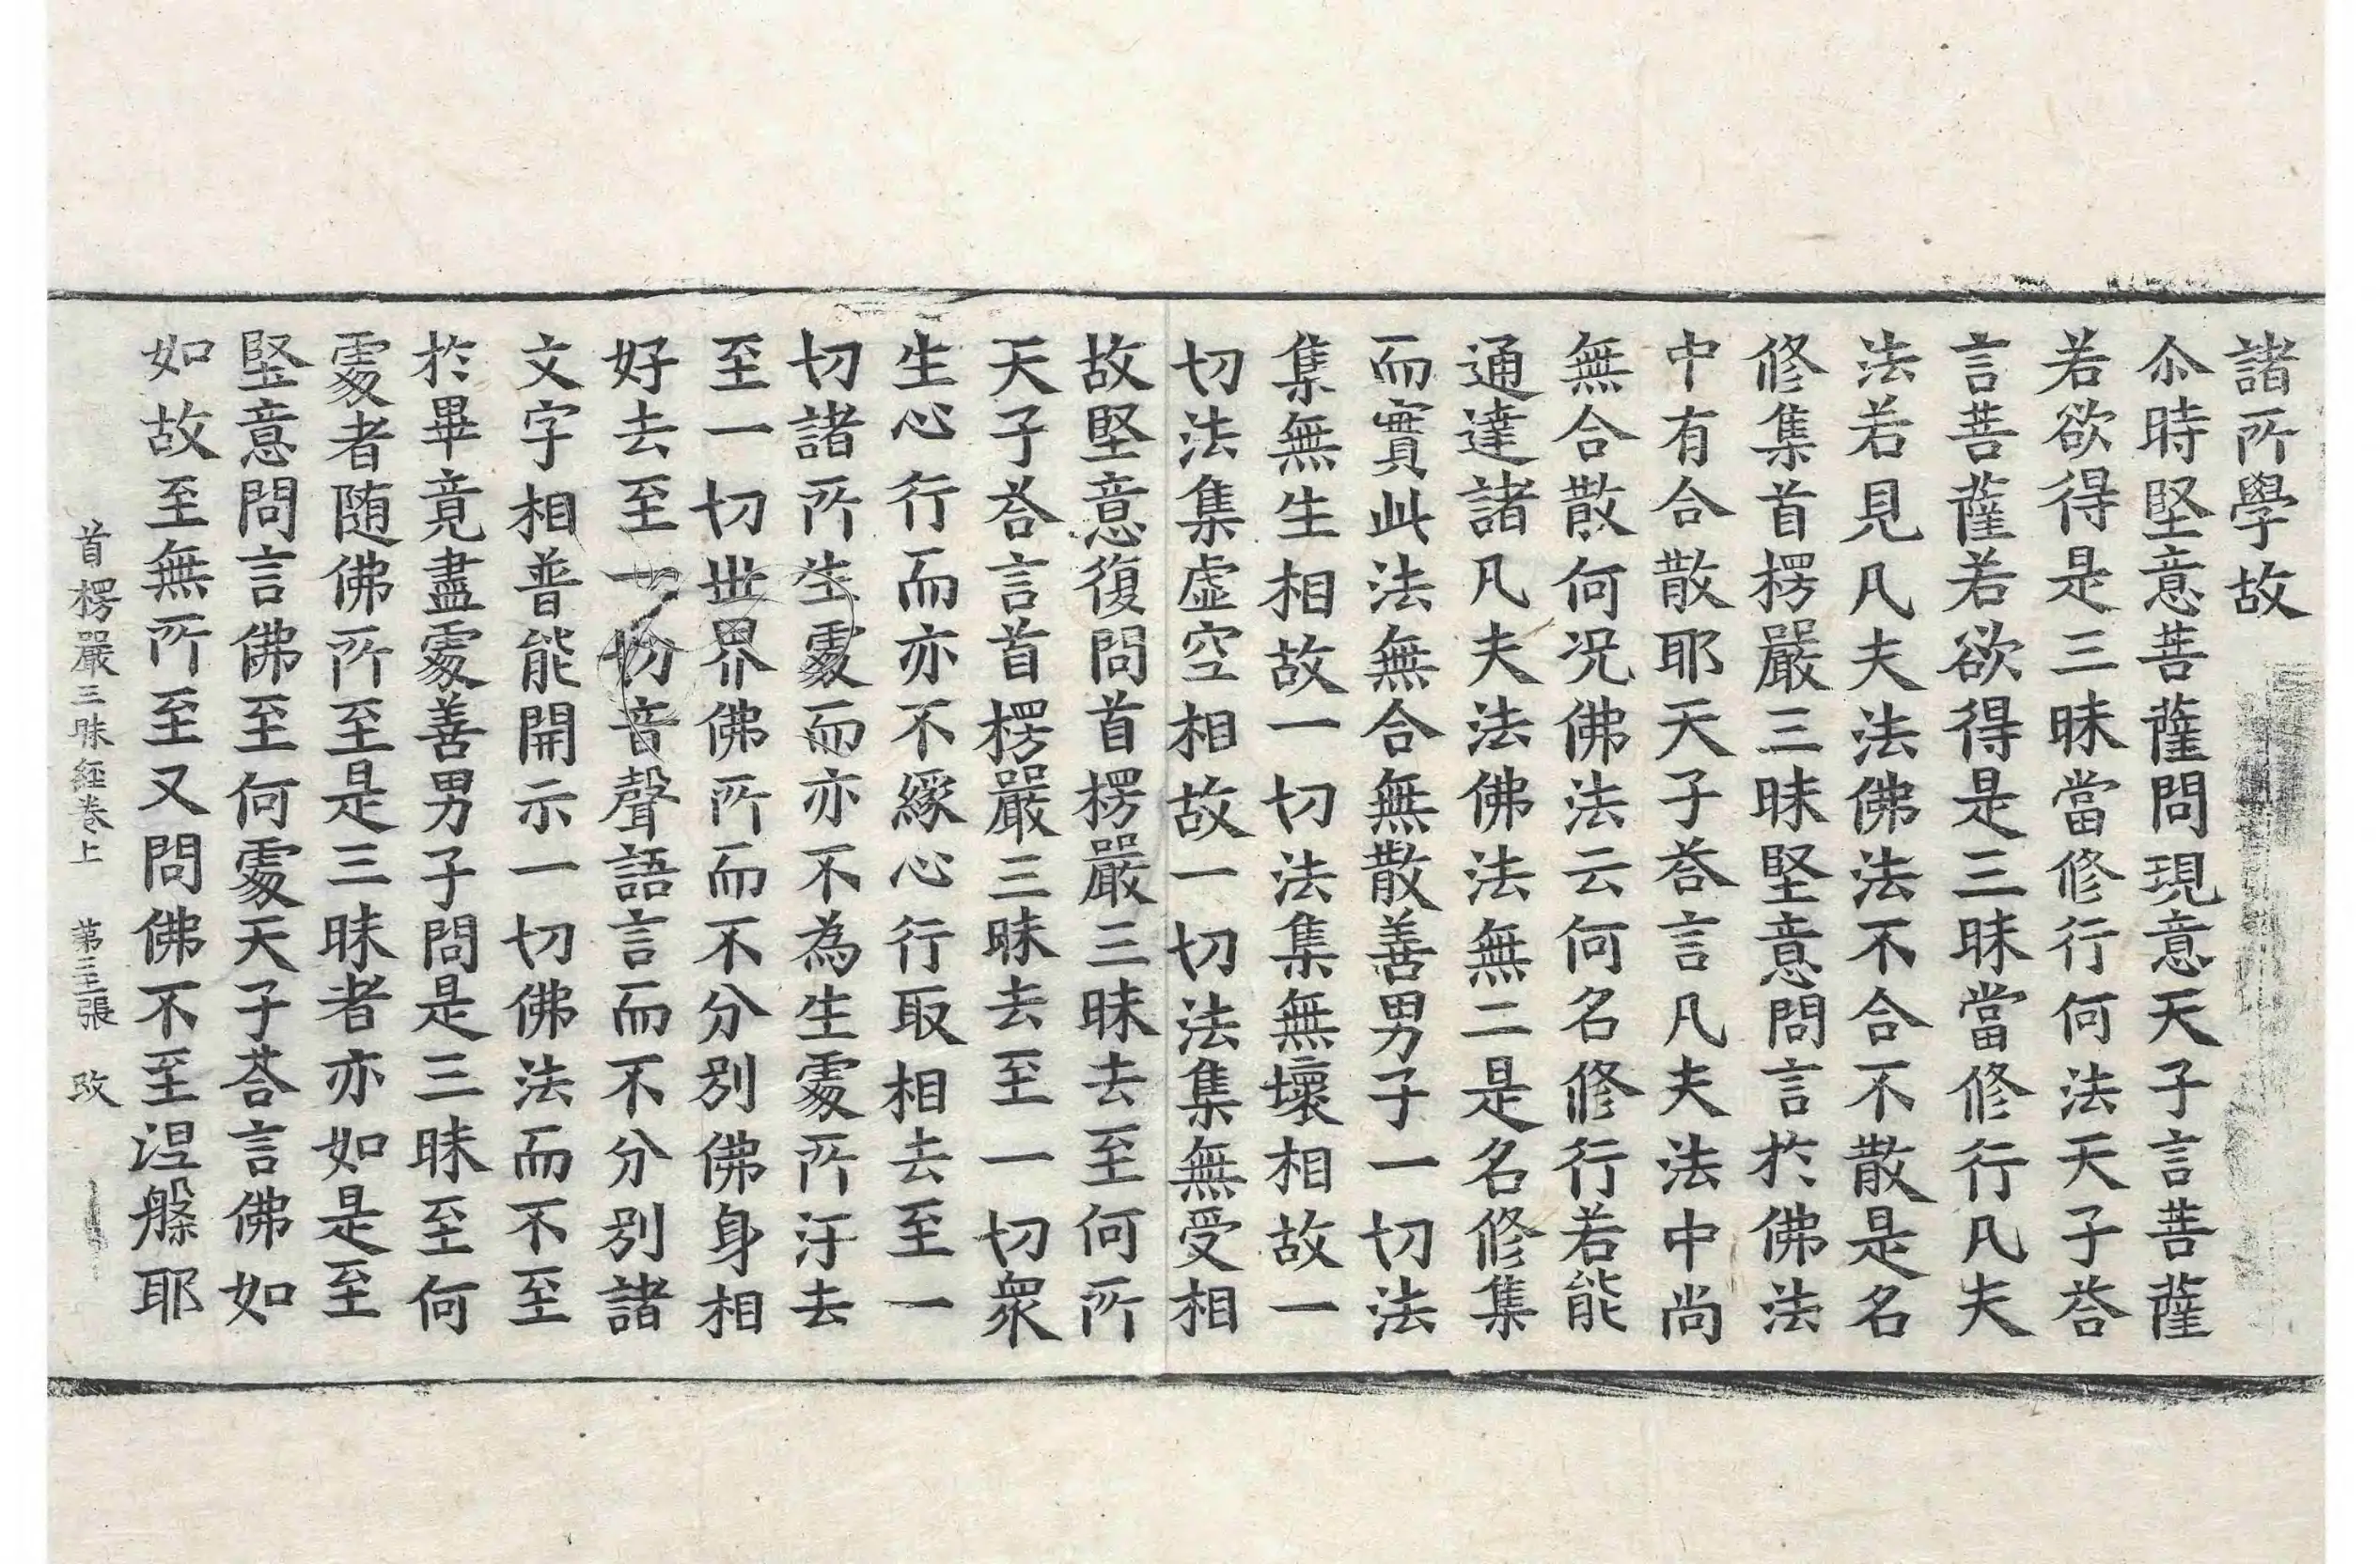 諸所學故
尒時堅意菩薩問現意天子言菩薩
若欲得是三昧當修行何法天子荅
言菩薩若欲得是三昧當修行凡夫
法若見凡夫法佛法不合不散是名
修集首楞嚴三昧堅意問言於佛法
中有合散耶天子荅言凡夫法中尚
無合散何況佛法云何名修行若能
通達諸凡夫法佛法無二是名修集
而實此法無合無散善男子一切法
集無生相故一切法集無壞相故一
切法集虛空相故一切法集無受相
故堅意復問首楞嚴三昧去至何所
天子荅言首楞嚴三昧去至一切衆
生心行而亦不緣心行取相去至一
切諸所生處而亦不為生處所汙去
至一切世界佛所而不分別佛身相
好去至一切音聲語言而不分別諸
文字相普能開示一切佛法而不至
於畢竟盡處善男子問是三昧至何
處者随佛所至是三昧者亦如是至
堅意問言佛至何處天子荅言佛如
如故至無所至又問佛不至涅槃耶
首楞嚴三昧經卷上 第三張 改